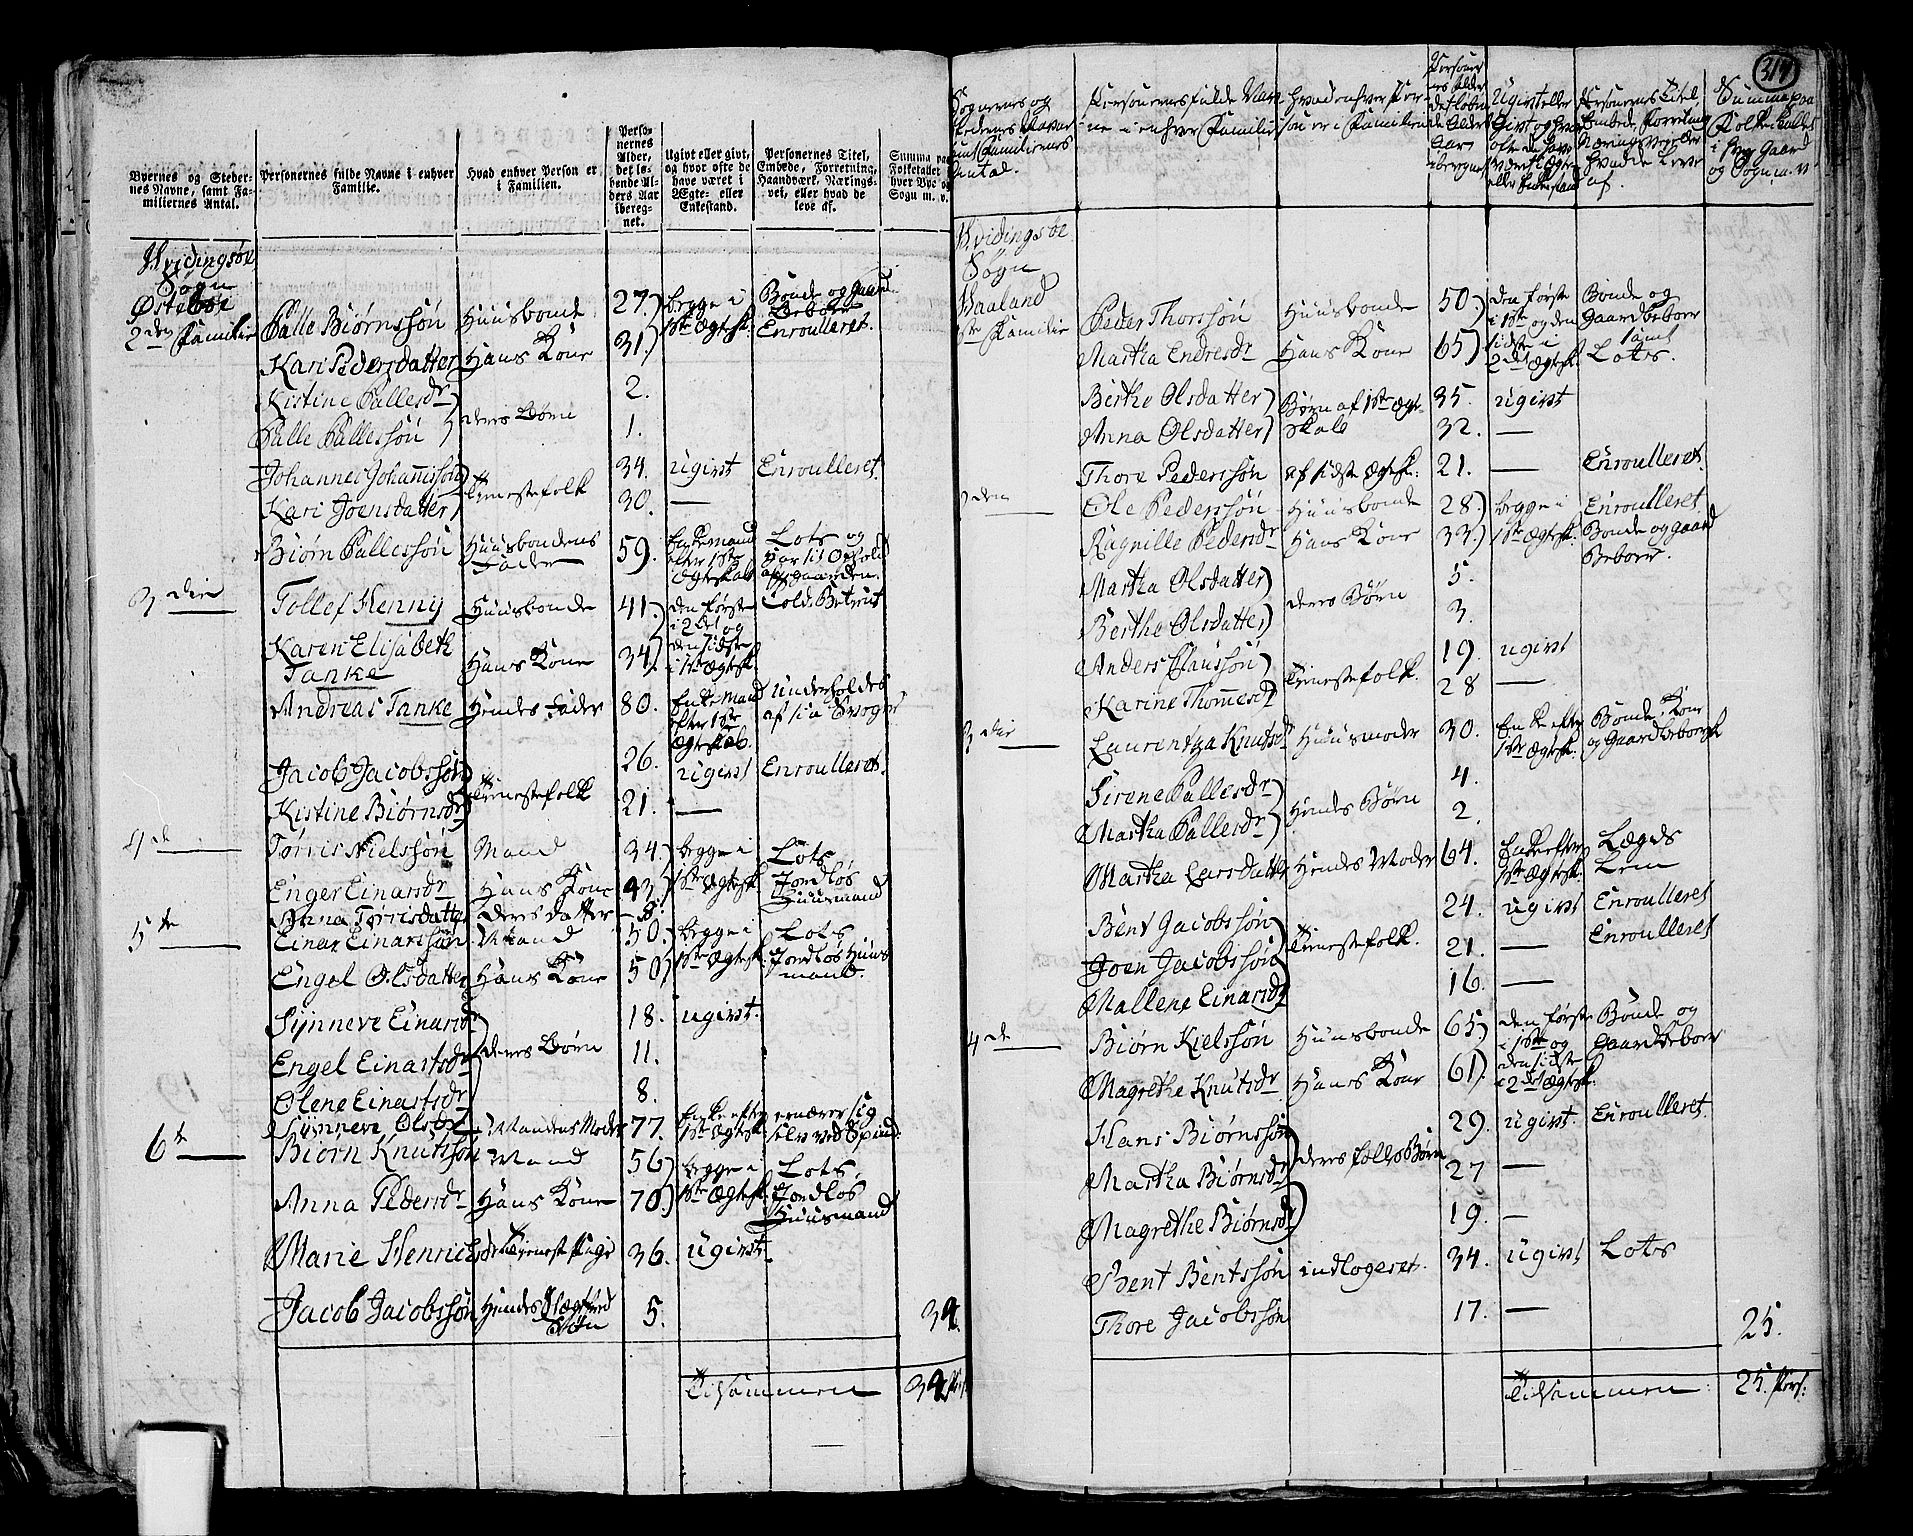 Byernes og Steder-
nes Navne, samt Fa-
miliernes Antal.
Personernes fulde Navne i enhver
Familie.
Hvad enhver Person er
i Familien.
Perso-
nernes
Alder,
det lø-
bende Al-
ders Aar
iberegnet.
Ugivt eller givt,
og hvor ofte de
have været i
Ægte- eller
Enkestand.
Personernes Titel,
Embede, Forretning,
Haandværk, Nærings-
vei, eller hvad de
leve af.
Summa paa
Folketallet
hver Bye og
Sogn m. v.
Hvidingsøe
Sogn
Østebøe
2den Familie
Palle Biørnssøn Huusbonde 27) begge i 1ste Ægtesk. Bonde og Gaard-Beboer Enroulleret.
Kari Pedersdatter Hans Kone 31)
Kistine Pallesdr) deres Børn 2.
Palle Pallessøn) 1.
Johannes Johannssøn) Tienestefolk 34. ugivt Enroulleret.
Kari Joensdatter) 30. —
Biørn Pallessøn Huusbondens Fader 59. Enkemand efter 1ste Ægteskab Lots og har sit Ophold af gaarden.
3die Tollef Henny Huusbonde 41) den første i 2det og
Karen Elisabeth
Tanke Hans Kone 34) den sidste i 1ste Ægtesk.
Andreas Tanke Hendes Fader 80. Enkemand efter 1ste Ægteskab. underholdes af sin Svoger
Jacob Jacobssøn) Tienestefolk 26. ugivt Enroulleret.
Kistine Biørnsdr) 21. —
4de Tørris Nielssøn Mand 34.) begge i 1ste Ægtesk. Lots Jordløs Huusmand
Enger Einarsdr Hans Kone 43)
Anna Tørrisdatter deres Datter — 8.
5te Einar Einarssøn Mand 50.) begge i 1ste Ægtesk. Lots Jordløs Huusmand.
Engel Olsdatter Hans Kone 50)
Synneve Einarsdr) deres Børn 18. ugivt.
Engel Einarsdr 11.
Olene Einarsdr 8.
Synneve Olsdr Mandens Moder 77. Enke efter 1ste Ægtesk. ernærer sig selv ved Spind.
6te Biørn Knutssøn Mand 56) begge i 1ste Ægtesk. Lots, Jordløs Huusmand
Anna Pedersdr Hans Kone 70.)
Marie Henrichsdr Tieneste Pige 36. ugivt
Jacob Jacobssøn Hendes Slægtfred Søn 5. 34.
Tilsammen 34 Pers.
317
Sognernes og
Stedernes Navne
samt Familiernes
Antal.
Personernes fulde Nav-
ne i enhver Familie
hvad enhver Per-
son er i Familien
Personer-
nes Alder
det løben-
de Alders
Aar
iberegnet
Ugivt eller
Givt og hvor
ofte de have
været i Ægte
eller Enkestand
Personernes Titel,
Embede, Forretning
Næringsvej eller
hvad de leve
af.
Summa paa
Folketallet
i hver Gaard
og Sogn m. v.
Hvidingsøe
Sogn
Vaaland
1ste Familie Peder Thorssøn Huusbonde 50) den første i 1ste og den Bonde og Gaardbeboer samt
Martha Endresdr Hans Kone 65) sidste i 2det Ægtesk. Lots.
Berthe Olsdatter) Børn af 1ste Ægteskab 35. ugivt
Anna Olsdatter) 32. —
Thore Pederssøn af sidste Ægtesk: 21. — Enroulleret.
2den Ole Pederssøn Huusbonde 28.) begge i 1ste Ægtesk. Enroulleret
Ragnille Pedersdr Hans Kone 33.) Bonde og gaard Beboer.
Martha Olsdatter) deres Børn 5.
Berthe Olsdatter) 3.
Anders Claussøn) Tienestefolk. 19. ugivt
Karine Thommesdr 28 —
3die Laurentza Knutsdr Huusmoder 30. Enke efter 1ste Ægtesk. Bonde Kone og Gaardbeboersk
Sirene Pallesdr) Hendes Børn 4.
Martha Pallesdr) 2.
Martha Larsdatter Hendes Moder 64. Enke efter 1ste Ægtesk. Lægds Lem
Bent Jacobssøn) Tienestefolk. 24. ugivt Enroulleret
Joen Jacobssøn 21. — Enroulleret
Mallene Einarsdr 16. —
4de Biørn Kielssøn Huusbonde 65) den første i 1ste og Bonde og Gaardbeboer
Magrethe Knutsdr Hans Kone 61) den sidste i 2det Ægtesk.
Hans Biørnssøn) deres fælles Børn 29. ugivt. Enroulleret.
Martha Biørnsdr 27 —
Magrethe Biørnsdr) 19. —
Bent Bentssøn indlogeret. 34. ugivt Lots
Thore Jacobssøn 17. — 25.
Tilsammen: 25. Pers: